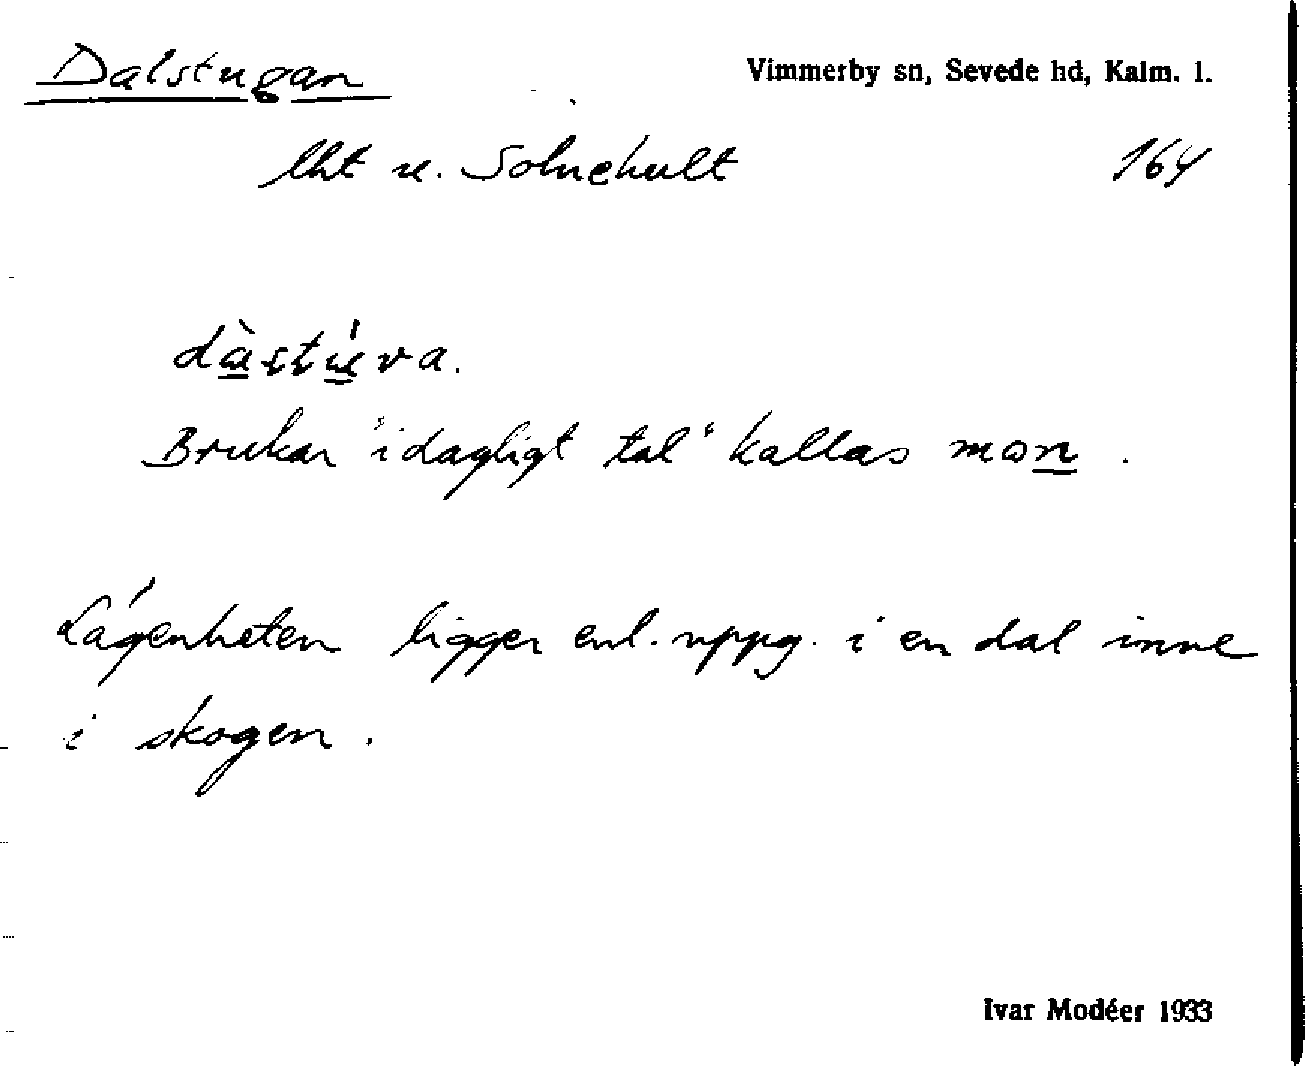 Dalstugan
Vimmerby sn, Sevede hd, Kalm. l.
lht u. Solnehult
164
dàstúva.
Brukar "i dagligt tal" kallas mon.
Lägenheten ligger enl. uppg. i en dal inne
i skogen.
Ivar Modéer 1933